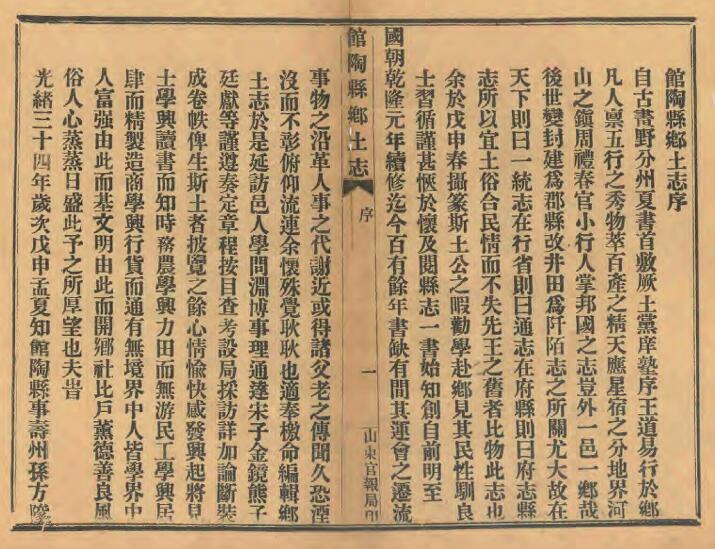 館陶縣鄉土志序
自古畫野分州夏書首敷厥土黨庠塾序王道易行於鄉
凡人禀五行之秀物萃百產之精天應星宿之分地界河
山之鎮周禮春官小行人掌邦國之志豈外一邑一鄉哉
後世變封建爲郡縣改井田爲阡陌志之所關尤大故在
天下則曰一統志在行省則曰通志在府縣則曰府志縣
志所以宜土俗合民情而不失先王之舊者比物此志也
余於戊申春攝篆斯土公之暇勸學赴鄉見其民性馴良
士習循謹甚愜於懷及閱縣志一書始知創自前明至
國朝乾隆元年續修迄今百有餘年書缺有間其運會之遷流
館陶縣鄉土志
序
一
山東官報局印
事物之沿革人事之代謝近或得諸父老之傳聞久恐湮
沒而不彰俯仰流連余懷殊覺耿耿也適奉檄命編輯鄉
土志於是延訪邑人學問淵博事理通達宋子金鏡熊子
廷獻等謹遵奏定章程按目查考設局採訪詳加論斷裝
成卷帙俾生斯土者披覽之餘心情愉快感發興起將見
士學興讀書而知時務農學興力田而無游民工學興居
肆而精製造商學興行貨而通有無境界中人皆學界中
人富强由此而基文明由此而開鄉社比戶薰德善良風
俗人心蒸蒸日盛此予之所厚望也夫旹
光緒三十四年歲次戊申孟夏知館陶縣事壽州孫方